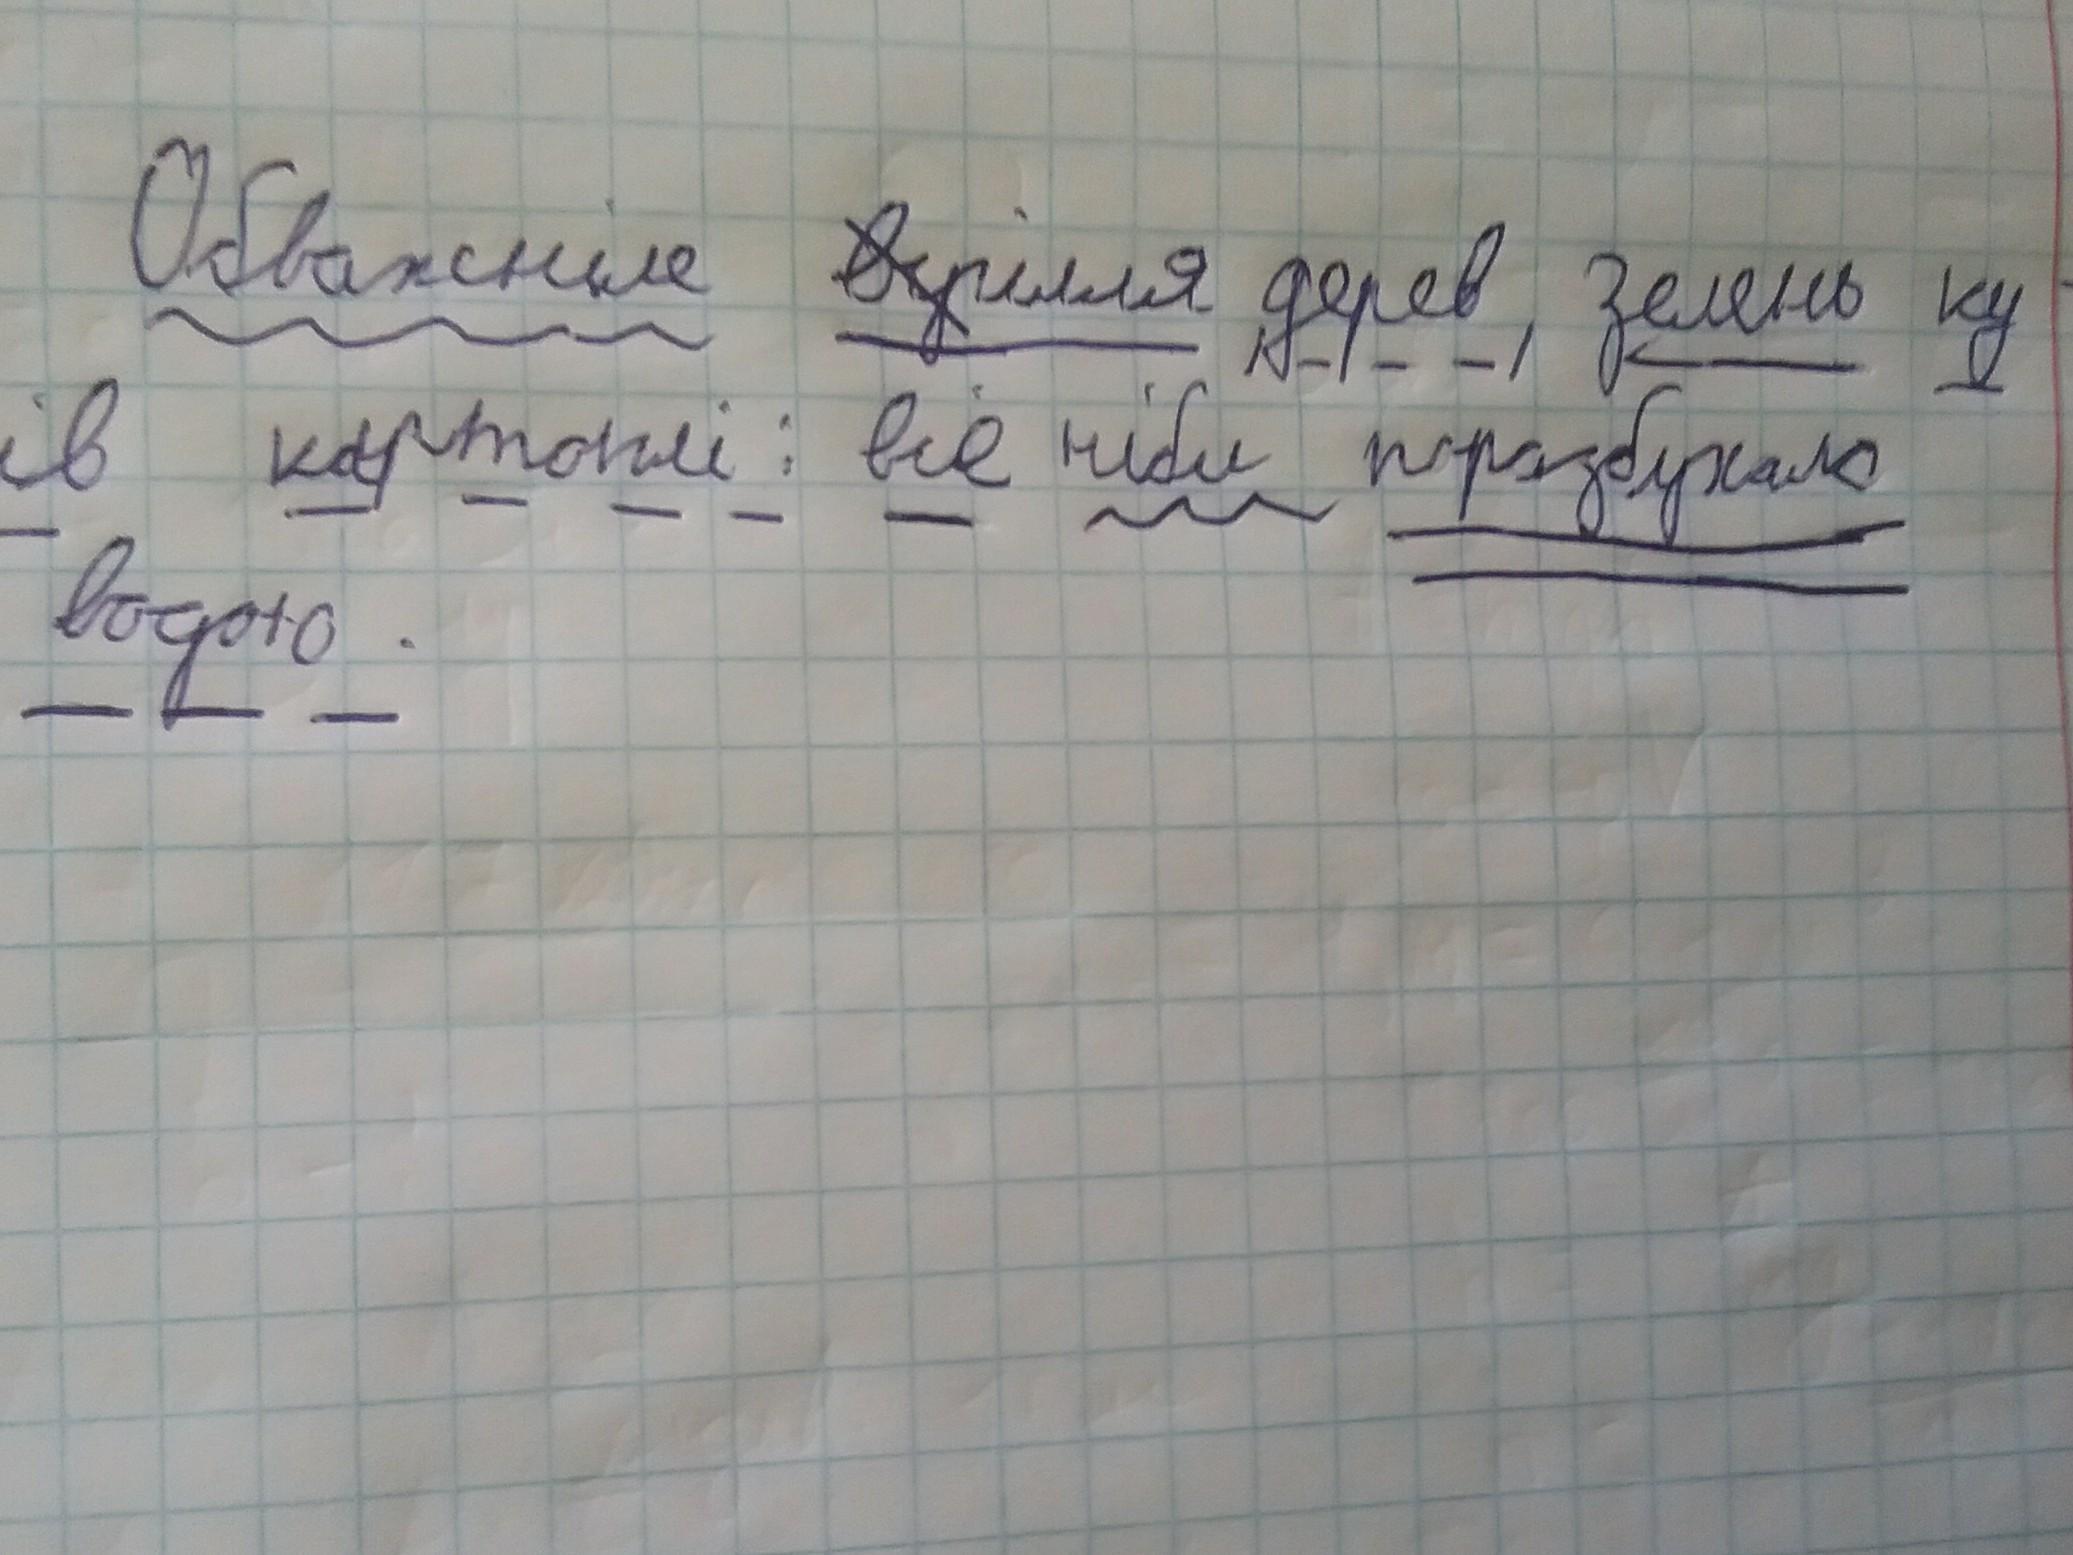 Обважніле крілля дерев, зелень ку-
ів картоплі: все ніби поразбухало
водою.